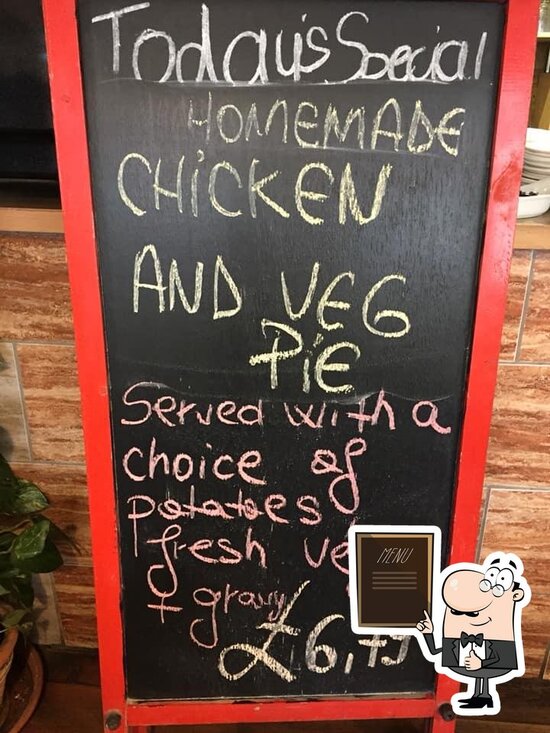 Today's Special
HOMEMADE
CHICKEN
AND VEG
PIE
Served with a
choice of
potatoes
fresh
+ gravy
MENU